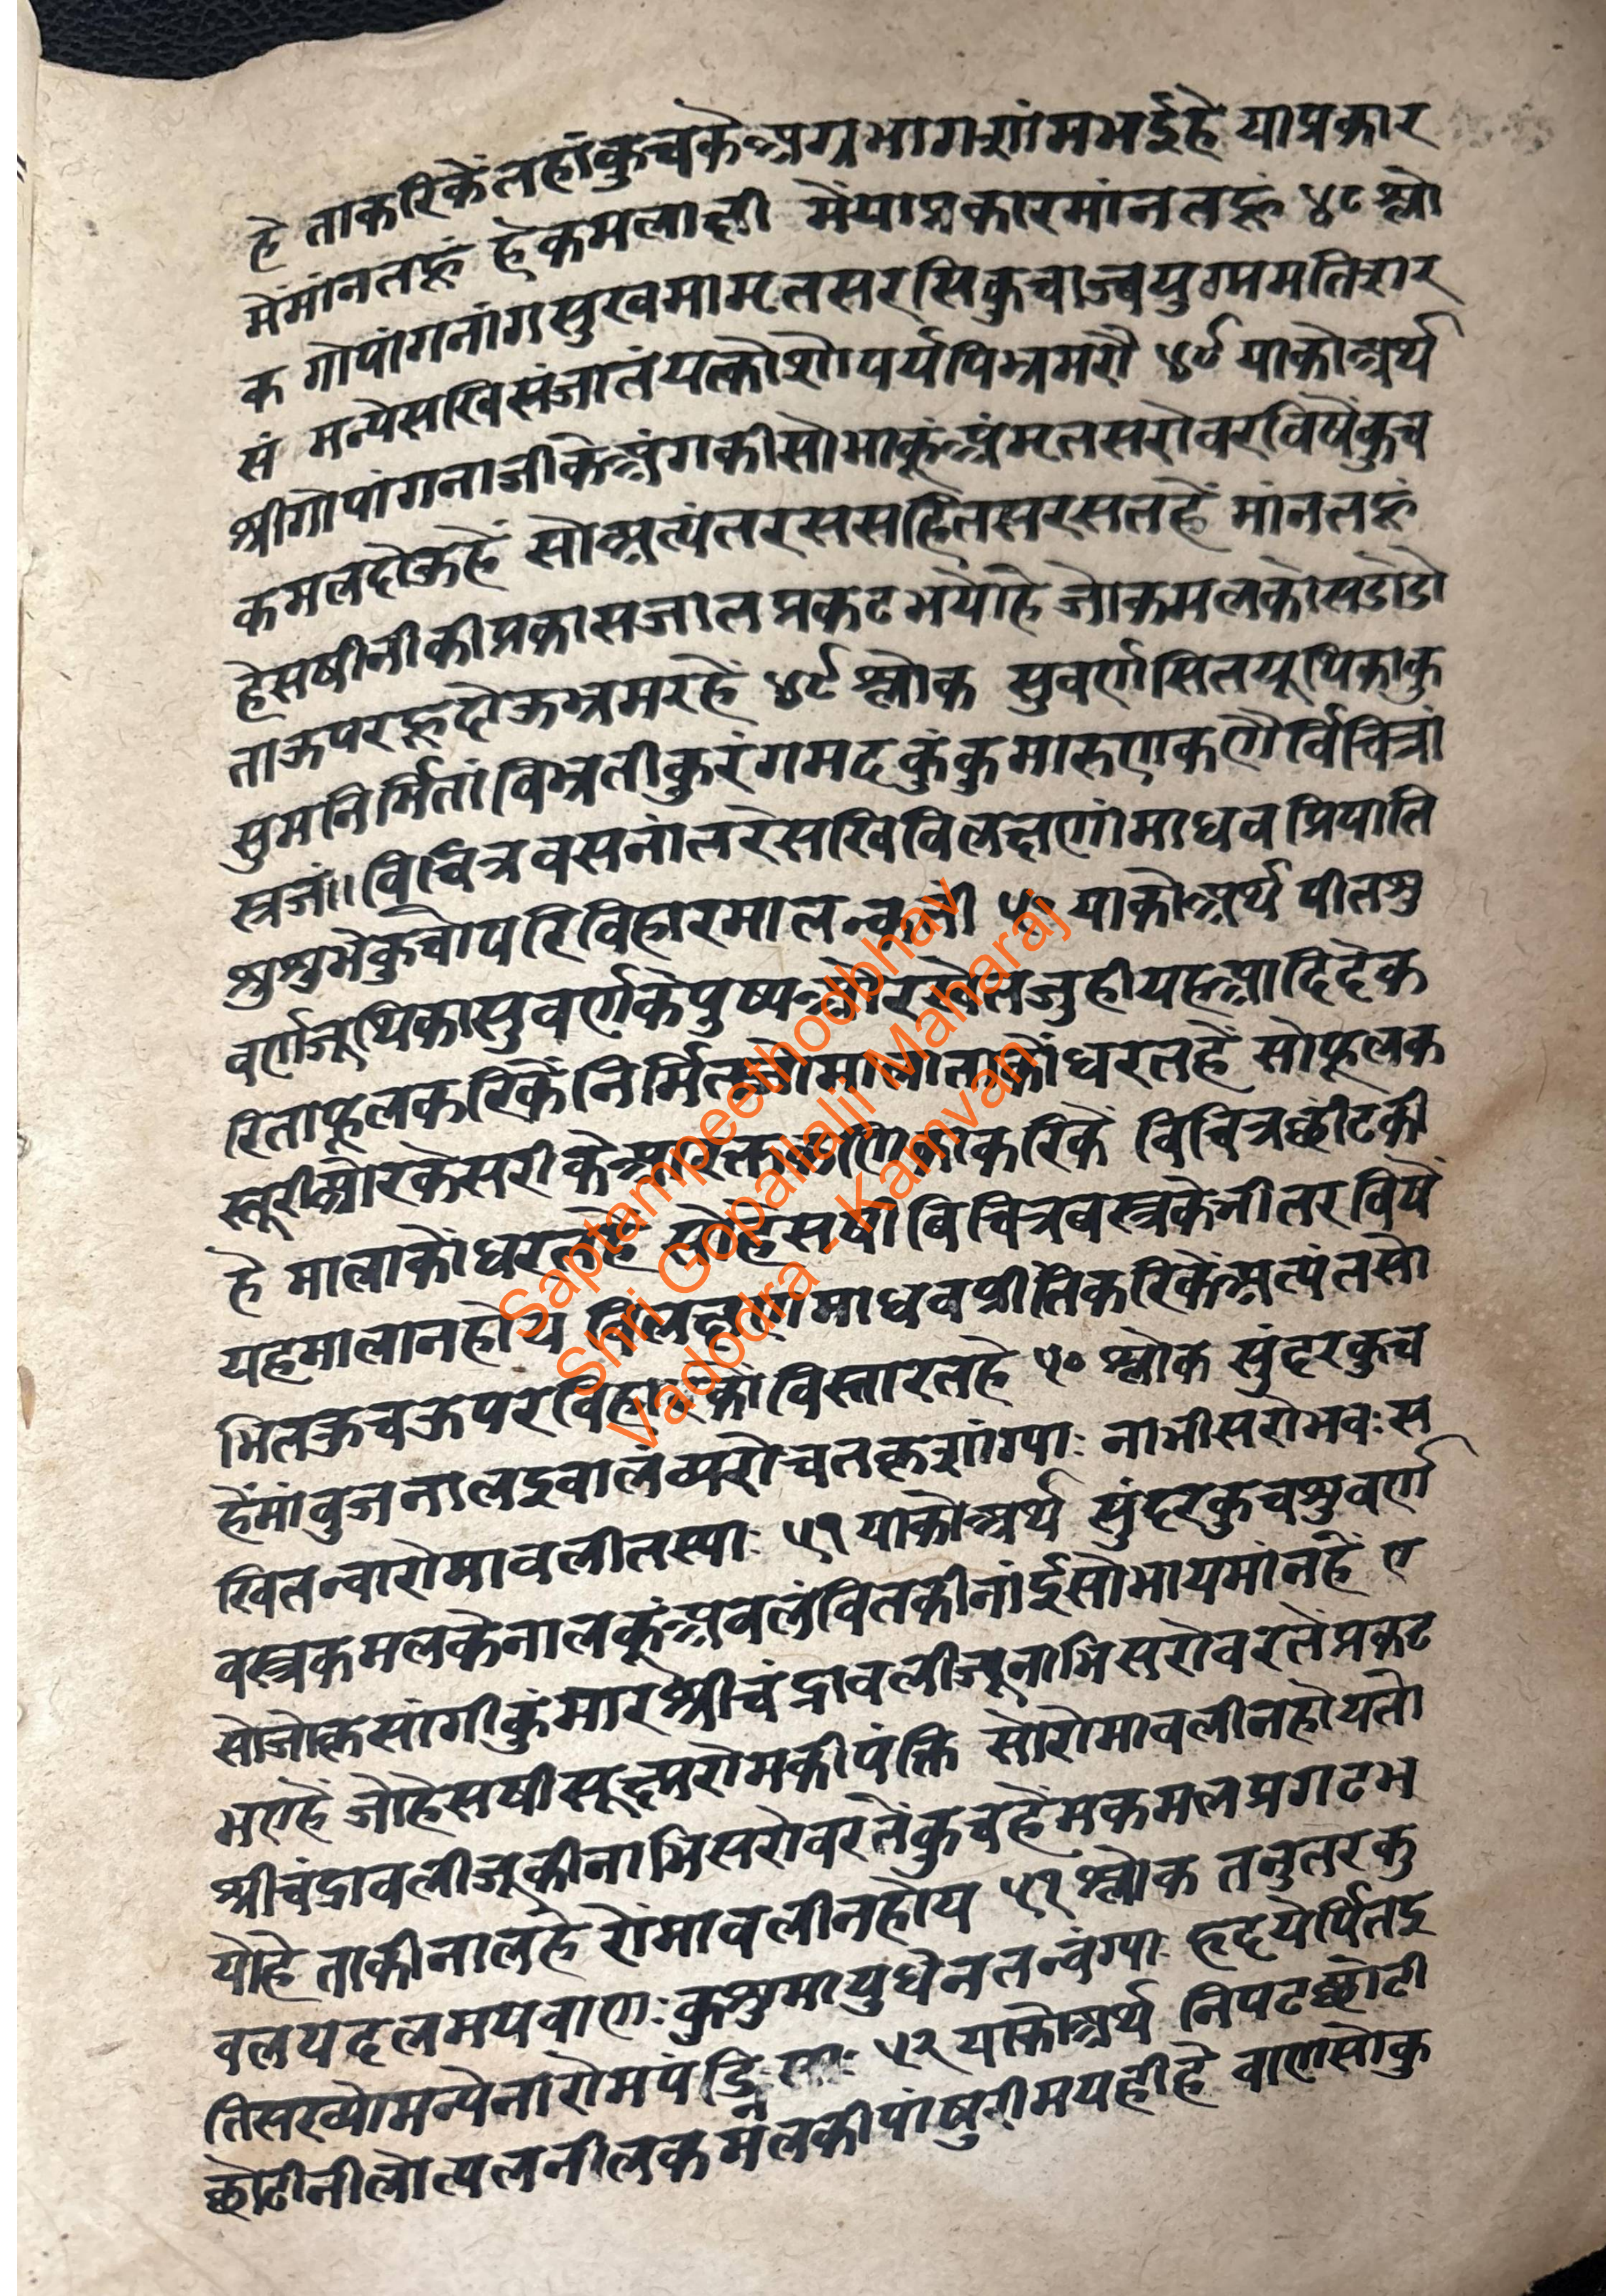 हे ताकरिकेंतहांकुचकेअग्रभागशांमभईहे याप्रकार
मेंमांनतहूं हेकमलाक्षी मेंयाप्रकारमांनतहूं ४८ श्लो
क गोपांगनांगसुखमामृतसरसिकुचाब्जयुग्ममतिशार
सं मन्येसखिसंजातंयत्कोशोपर्यपिभ्रमरौ ४९ याकोअर्थ
श्रीगोपांगनाजीकेअंगकीसोभाकूंअंमतसरोवरविषेंकुच
कमलदोऊहें सोअत्यंतरससहितसरसतहें मांनतहूं
हेसषीनीकीप्रकासजातप्रकटभयोहे जोकमलकोसडोडो
ताऊपरहूदोऊभ्रमरहें ४९ श्लोक सुवर्णसितयूथिकाकु
सुमनिर्मितांविभ्रतीकुरंगमदकुंकुमारुणकणैर्विचित्रां
स्रजं।। विचित्रवसनांतरेसखिविलक्षणांमाधवप्रियाति
शुशुभेकुचोपरिविहारमातन्वती ५० याकोअर्थ पीतशु
वर्णजूथिकासुवर्णकेपुष्पओरस्वेतजुहीयहआदिदेक
रिताफूलकरिकेंनिर्मितजोमालाताकोंधरतहें सोफूलक
स्तूरीओरकेसरीकेआरक्तकणिकाकरिकें विचित्रछींटकी
हे मालाकोंधरतहें सोहेसषीविचित्रबस्त्रकेभीतरविषें
यहमालानहोय विलक्षणमाधवप्रीतिकरिकेंअत्यंतसो
भितकुचऊपरविहारकोंविस्तारतहे ५० श्लोक सुंदरकुच
हेंमांवुजनालइवालंव्यरोचतकृशांग्याः नाभीसरोभवःस
खितन्वारोमावलीतस्याः ५१ याकोअर्थ सुंदरकुचशुवर्ण
वस्त्रकमलकेनालकूंअवलंवितकीनांईसोभायमांनहें ए
सोजोकृसांगीकुंमारश्रीचंद्रावलीजूनाभिसरोवरतेंप्रकट
भएहें जोहेसषीसूक्ष्मरोमकीपंक्ति सोरोमावलीनहोयतो
श्रीचंद्रावलीजूकीनाभिसरोवरतेंकुचहेंमकमलप्रगटभ
योहे ताकीनालहे रोंमावलीनहोय ५१ श्लोक तनुतरकु
वलयदलमयवाणःकुशुमायुधेनतन्वंग्याः हृदयेर्पितइ
तिसख्योमन्येनोरोमपंक्तिः ५२ याकोअर्थ निपटछोटी
छोटीनीलोत्पलनीलकमलकीपांषुरीमयहीहे वाणसोकु
Saptampeethodbhav
Shri Gopallalji Maharaj
Vadodra - Kamvan